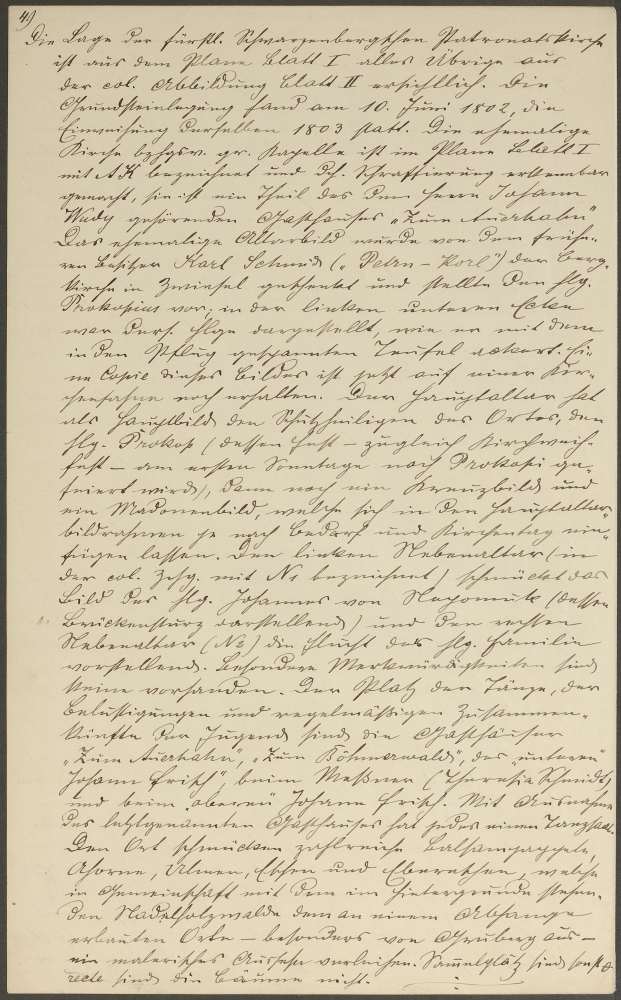 49
Die Lage der fürstl. Schwarzenbergschen Patronatskirche
ist aus dem Plane Blatt I alles Übrige aus
der col. Abbildung Blatt II ersichtlich. Die
Grundsteinlegung fand am 10. Juni 1802, die
Einweihung derselben 1803 statt. Die ehemalige
Kirche bzhgsw. gr. Kapelle ist im Plane Blatt I
mit AK bezeichnet und dch. Schraffierung erkennbar
gemacht, sie ist ein Theil des dem Herrn Johann
Wudy gehörenden Gasthauses „Zum Auerhahn"
Das ehemalige Altarbild wurde von dem frühe-
ren Besitzer Karl Schmid („Petrn-Korl") der Berg-
kirche in Zwiesel geschenkt und stellte den hlg.
Prokopius vor; in der linken unteren Ecke
war ders. Hlge dargestellt, wie er mit dem
in den Pflug gespannten Teufel ackert. Ei-
ne Copie dieses Bildes ist jetzt auf einer Kir-
chenfahne noch erhalten. Der Hauptaltar hat
als Hauptbild den Schutzheiligen des Ortes, den
hlg. Prokop (dessen Fest – zugleich Kirchweih-
fest – am ersten Sonntage nach Prokopi ge-
feiert wird), dann noch ein Kreuzbild und
ein Madonenbild, welche sich in den Hauptaltar-
bildrahmen je nach Bedarf und Kirchentag ein-
fügen lassen. Den linken Nebenaltar (in
der col. Zchg. mit N1 bezeichnet) schmückt das
Bild des hlg. Johannes von Nepomuk (dessen
Brückensturz darstellend) und den rechten
Nebenaltar (N2) die Flucht der hlg. Familie
vorstellend. Besondere Merkwürdigkeiten sind
keine vorhanden. Der Platz der Tänze, der
Belustigungen und regelmäßigen Zusammen-
künfte der Jugend sind die Gasthäuser
„Zum Auerhahn", „Zum Böhmerwald", des „unteren"
Johann Frisch", beim Meßner (Theresia Schmidt)
und beim „oberen" Johann Frisch. Mit Ausnahme
des letztgenannten Gasthauses hat jedes einen Tanzsaal.
Den Ort schmücken zahlreiche Balsampappeln,
Ahorne, Ulmen, Eschen und Ebereschen, welche
in Gemeinschaft mit dem im Hintergrunde stehen-
den Nadelholzwalde dem an einem Abhange
erbauten Orte – besonders von Gruberg aus –
ein malerisches Aussehen verleihen. Sammelplätz sind sonst
recte sind die Bäume nicht.